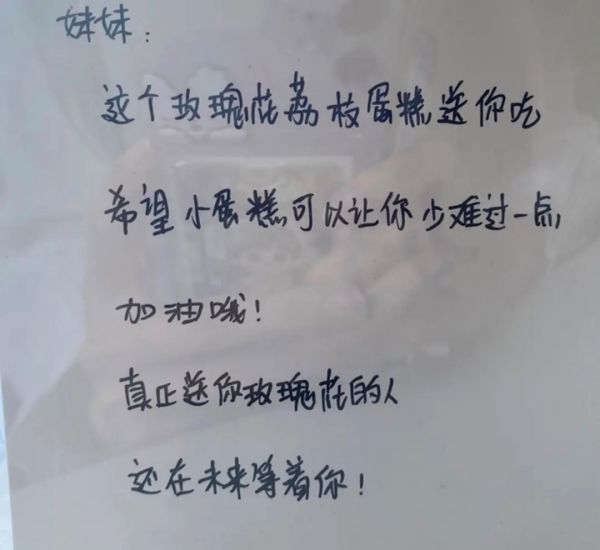 妹妹：
这个玫瑰花荔枝蛋糕送你吃
希望小蛋糕可以让你少难过一点
加油哦！
真正送你玫瑰花的人
还在未来等着你！